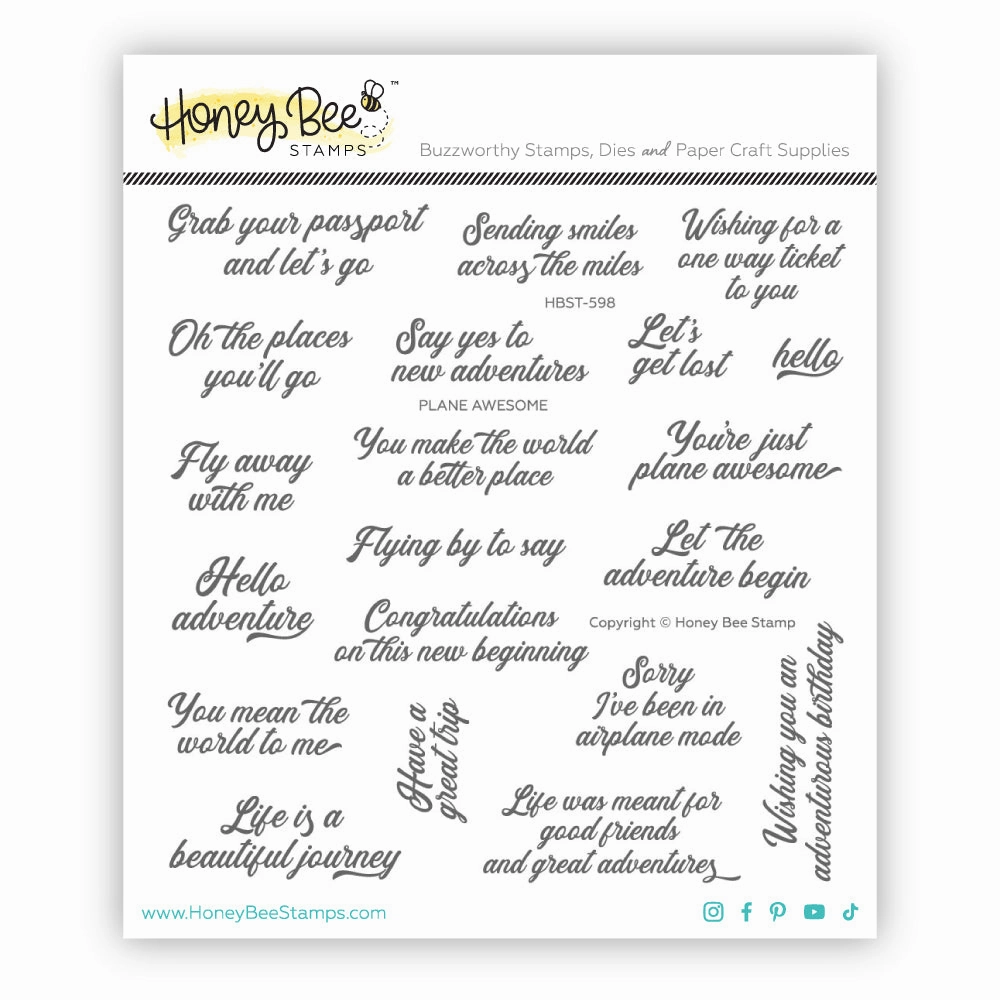 Honey Bee™
STAMPS
Buzzworthy Stamps, Dies and Paper Craft Supplies
Grab your passport
and let's go
Sending smiles
across the miles
Wishing for a
one way ticket
to you
HBST-598
Oh the places
you'll go
Say yes to
new adventures
Let's
get lost
hello
PLANE AWESOME
Fly away
with me
You make the world
a better place
You're just
plane awesome
Flying by to say
Let the
adventure begin
Hello
adventure
Congratulations
on this new beginning
Copyright © Honey Bee Stamp
Sorry
I've been in
airplane mode
Wishing you an
adventurous birthday
You mean the
world to me
Have a
great trip
Life is a
beautiful journey
Life was meant for
good friends
and great adventures
www.HoneyBeeStamps.com